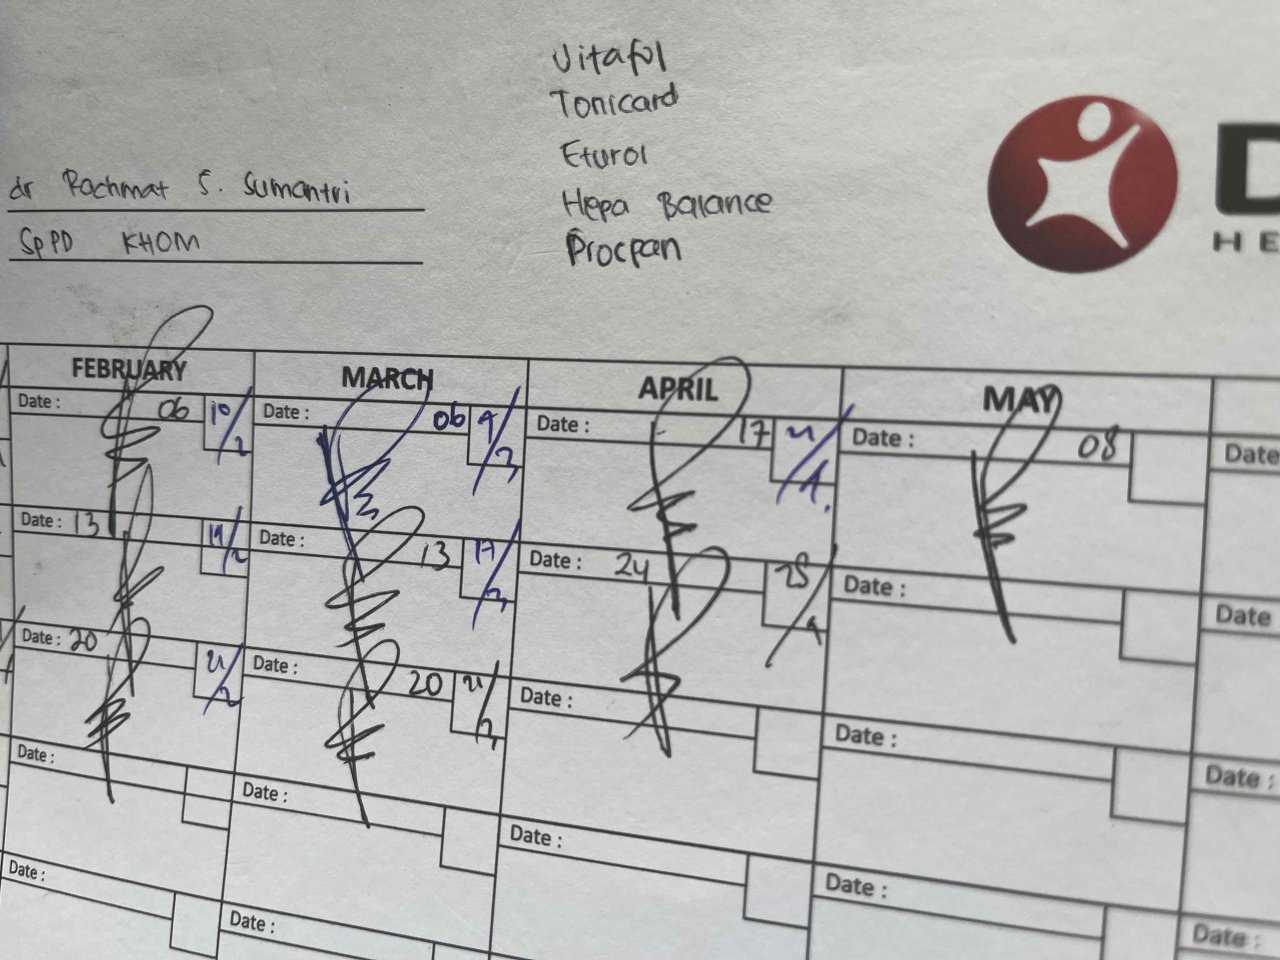 Vitafol
Tonicard
Eturol
Hepa Balance
Procpan
dr Rachmat S. Sumantri
SpPD KHOM
D
HE
FEBRUARY MARCH APRIL MAY
Date : 06 10/2 Date : 06 9/3 Date : 17 21/4 Date : 08 Date
Date : 13 19/2 Date : 13 17/3 Date : 24 28/4 Date : Date
Date : 20 21/2 Date : 20 21/3 Date : Date : Date :
Date : Date : Date : Date : Date :
Date : Date :